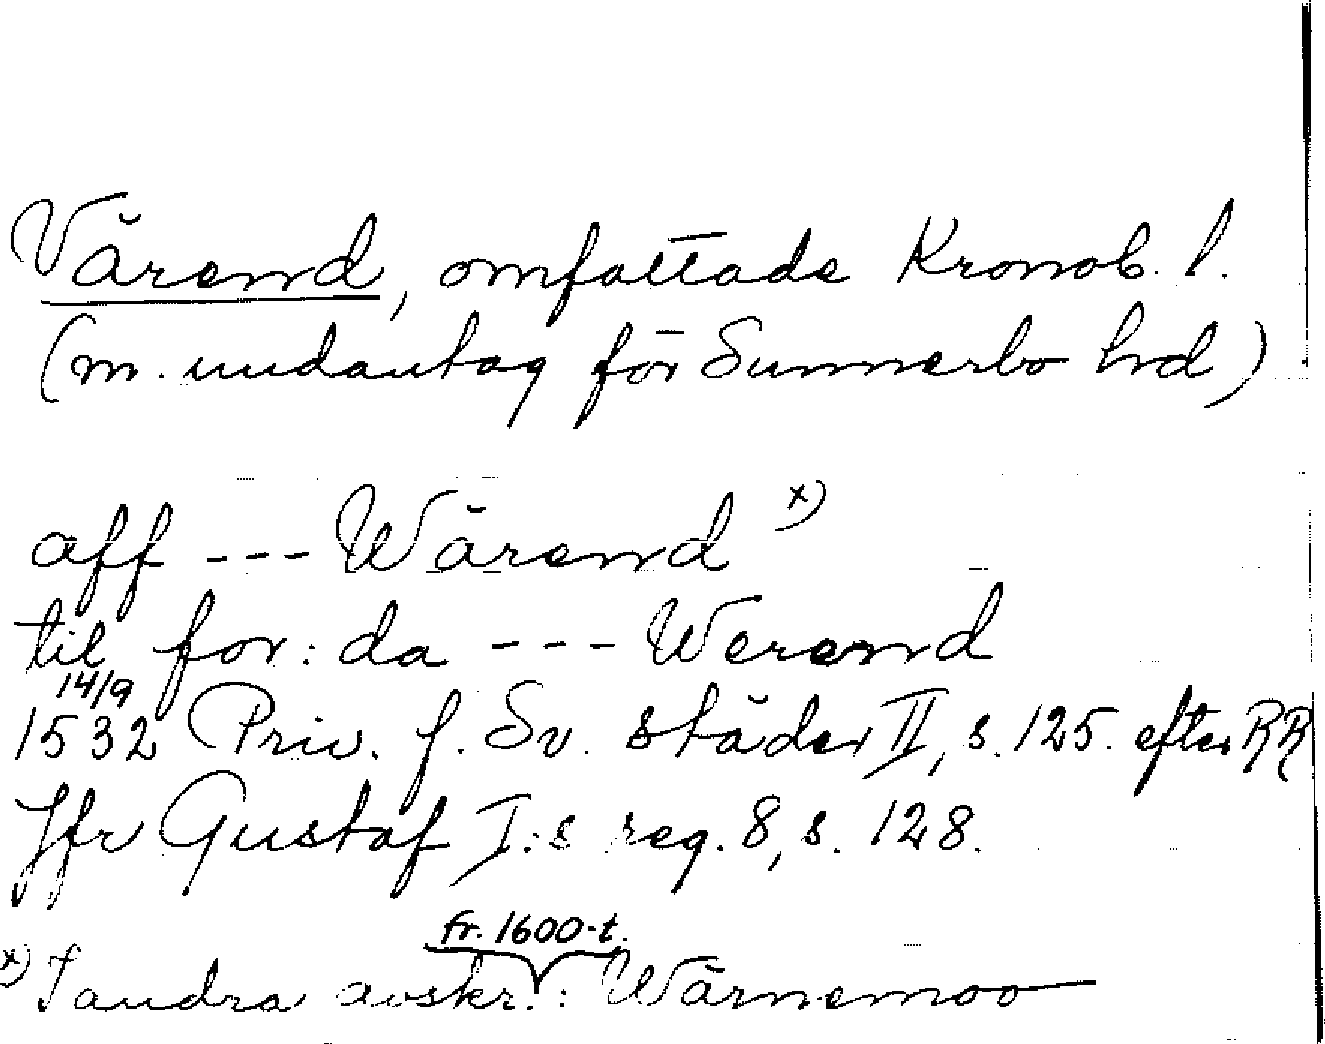 Värend, omfattade Kronob. l.
(m. undantag för Sunnerbo hd)
aff --- Wärend x)
til for: da --- Werend
14/9
1532 Priv. f. Sv. städer II, s. 125. efter RR
Jfr Gustaf I:s reg. 8, s. 128.
fr. 1600-t.
x) I andra avskr.: Wärnemoo